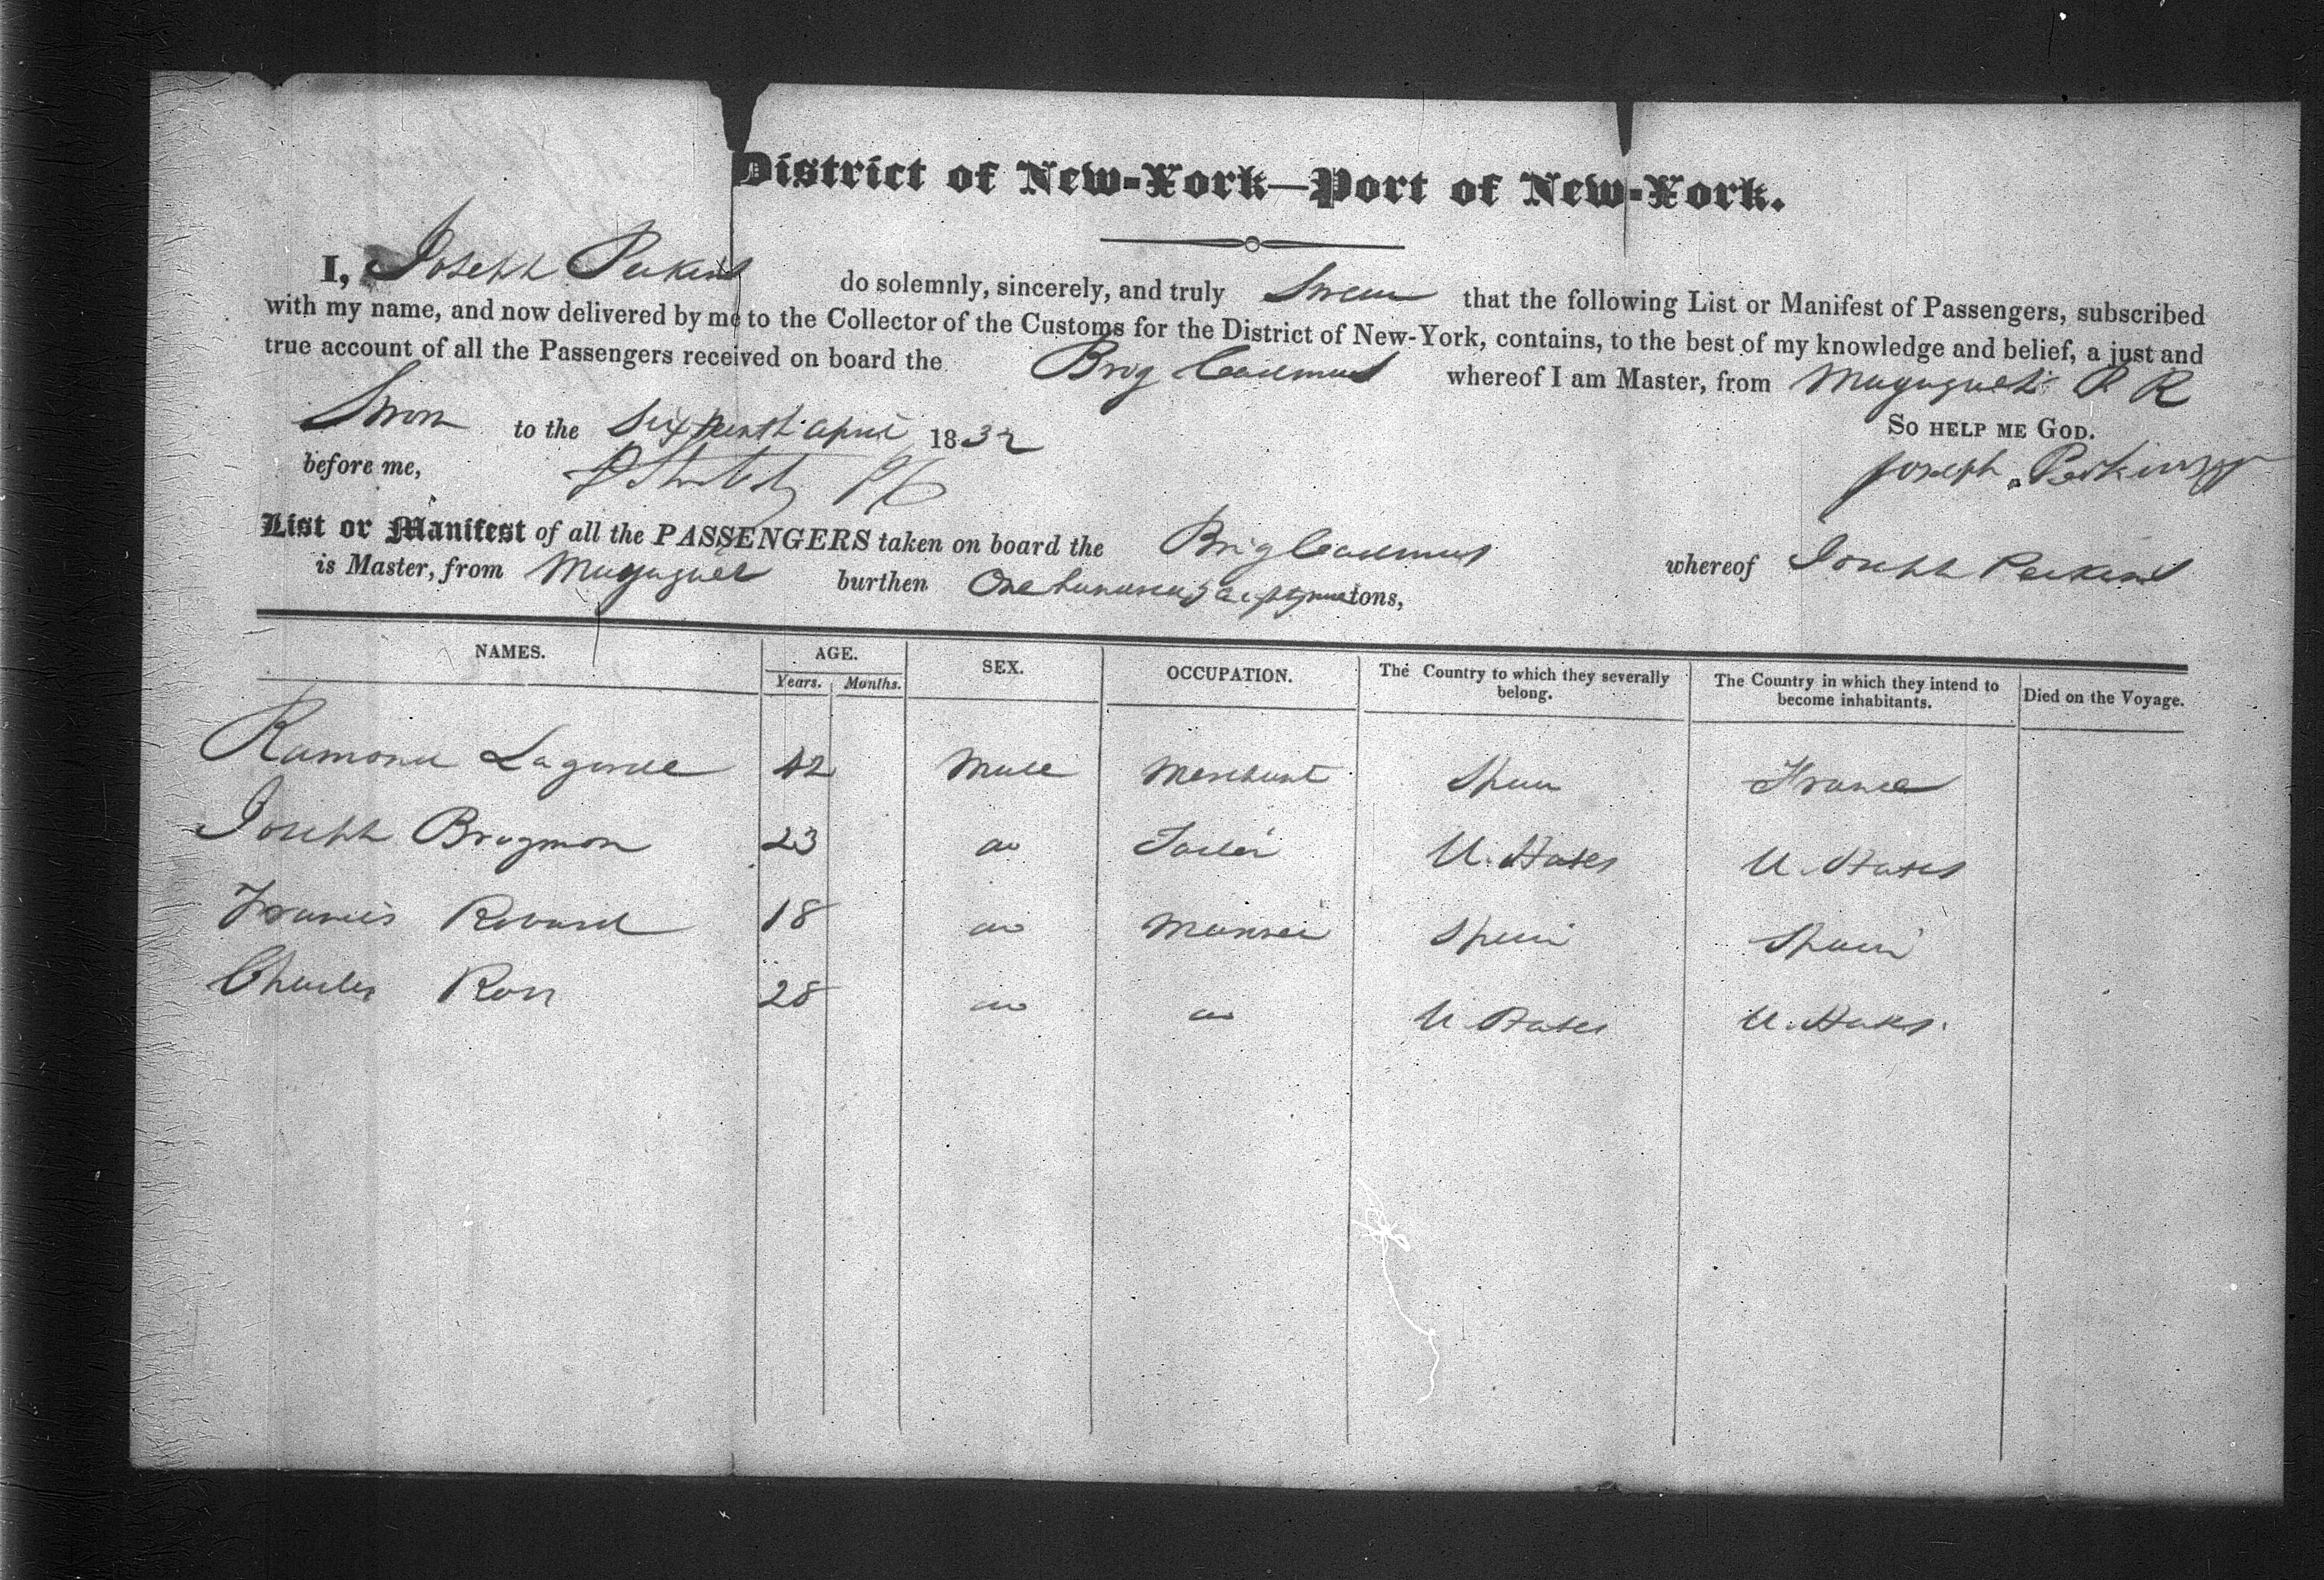 District of New-York—Port of New-York.
I, Joseph Perkins do solemnly, sincerely, and truly Swear that the following List or Manifest of Passengers, subscribed
with my name, and now delivered by me to the Collector of the Customs for the District of New-York, contains, to the best of my knowledge and belief, a just and
true account of all the Passengers received on board the Brig Cadmus whereof I am Master, from Mayaguez P R
Sworn to the Sixteenth april 1832 So help me God.
before me, Joseph Perkins
List or Manifest of all the PASSENGERS taken on board the Brig Cadmus whereof Joseph Perkins
is Master, from Mayaguez burthen One hundred tons,
NAMES. AGE. SEX. OCCUPATION. The Country to which they severally belong. The Country in which they intend to become inhabitants. Died on the Voyage.
Years. Months.
Ramond Lagarde 42 Male Merchant Spain France
Joseph Brugmon 23 do U. States U. States
Francis 18 do Spain Spain
Charles Ross 28 do do U States U. States.